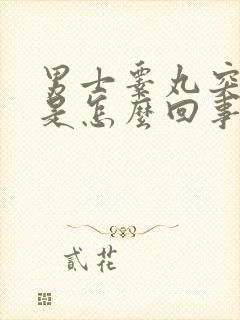 男士睾丸突
是怎麼回事
貳花